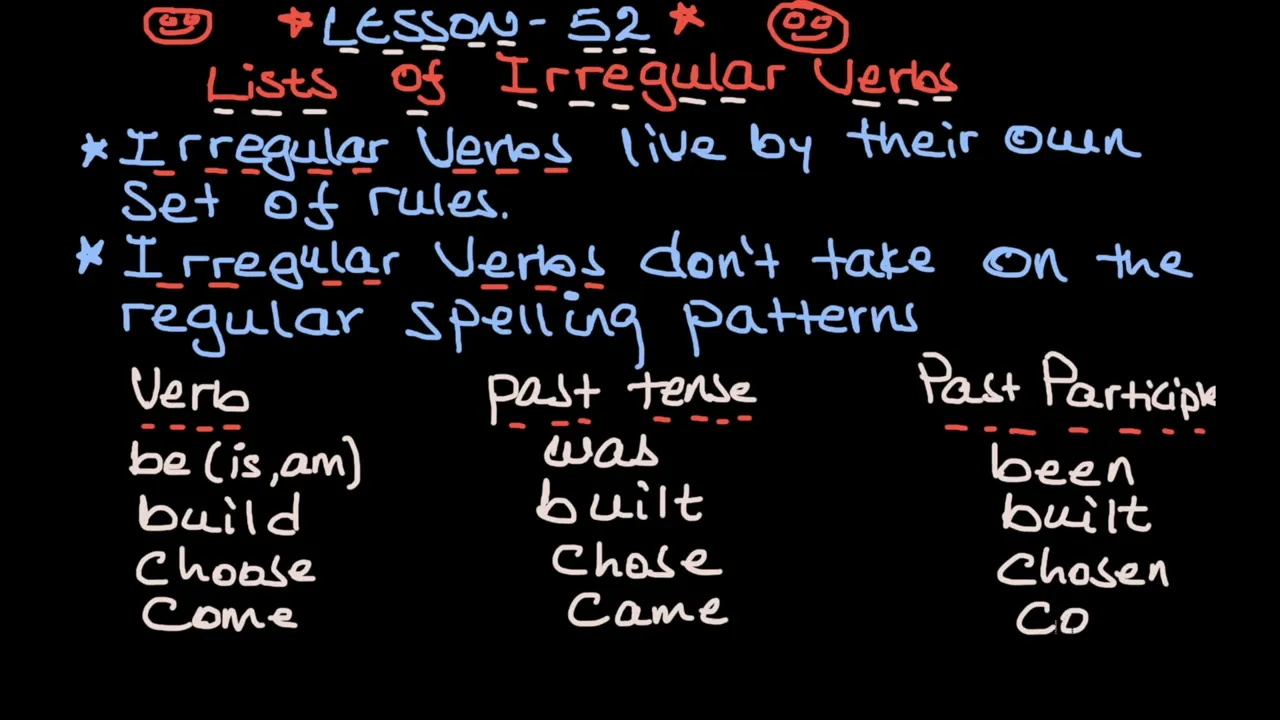 * LESSON - 52 *
Lists Of Irregular Verbs
* Irregular Verbs live by their own
Set Of rules.
* Irregular Verbs don't take on the
regular spelling patterns
Verb past tense Past Participle
be (is, am) was been
build built built
Choose Chose Chosen
Come Came Co